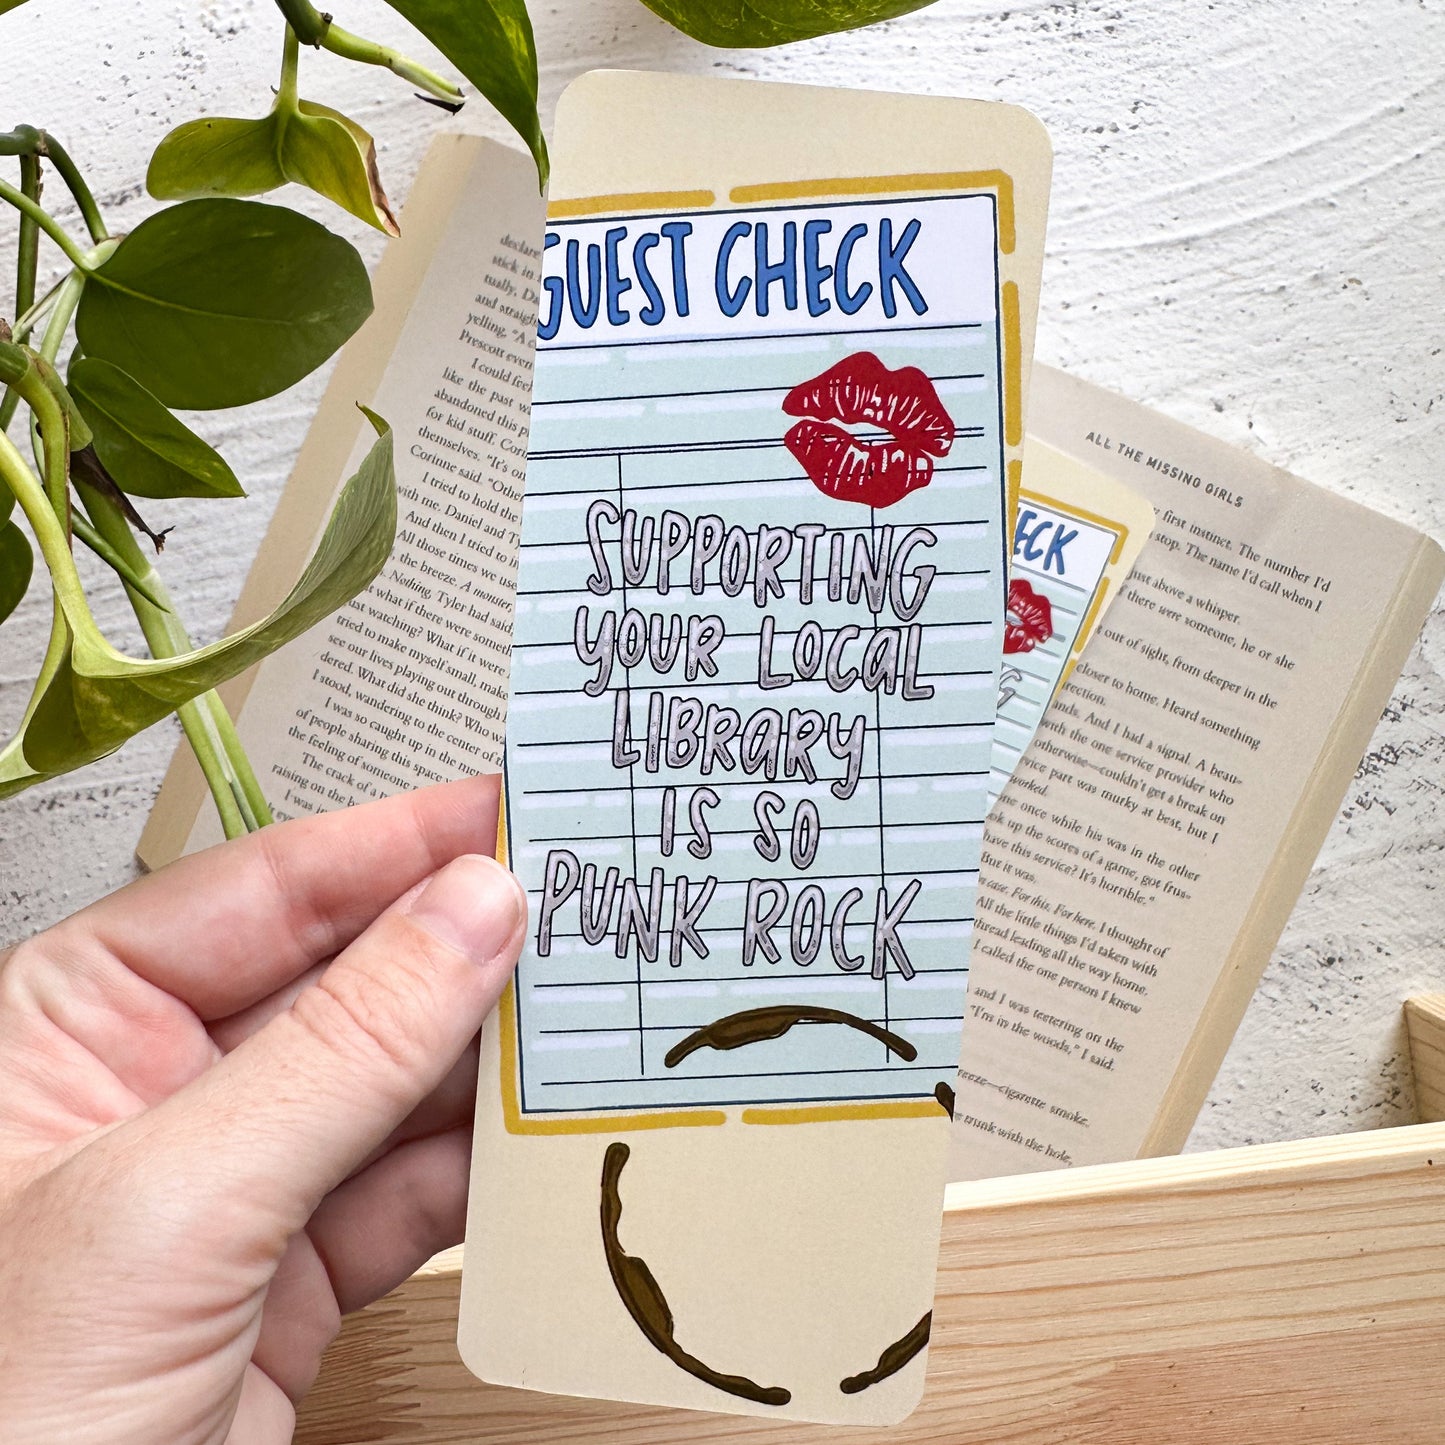 GUEST CHECK
SUPPORTING
YOUR LOCAL
LIBRARY
IS SO
PUNK ROCK
declare
stick in
tually, Da
and straigh
yelling, "A c
Prescott even
I could feel
like the past wa
abandoned this p
for kid stuff, Cori
themselves. "It's on
Corinne said. "Other
I tried to hold the
with me. Daniel and Ty
And then I tried to i
All those times we use
, the breeze. A monster,
. Nothing, Tyler had said
t what if there were someth
ust watching? What if it were
tried to make myself small, make
see our lives playing out through
dered. What did she think? Who wa
I stood, wandering to the center of t
I was so caught up in the mem
of people sharing this space w
the feeling of someone
raising on the b
The crack of a
I was in
ECK
G
ALL THE MISSING GIRLS
y first instinct. The number I'd
stop. The name I'd call when I
just above a whisper.
f there were someone, he or she
t out of sight, from deeper in the
closer to home. Heard something
rection.
ands. And I had a signal. A beau-
with the one service provider who
otherwise—couldn't get a break on
rvice part was murky at best, but I
worked.
one once while his was in the other
ok up the scores of a game, got frus-
have this service? It's horrible."
But it was.
n case. For this. For here. I thought of
All the little things I'd taken with
thread leading all the way home.
I called the one person I knew
and I was teetering on the
"I'm in the woods," I said.
reeze—cigarette smoke.
e trunk with the hole,